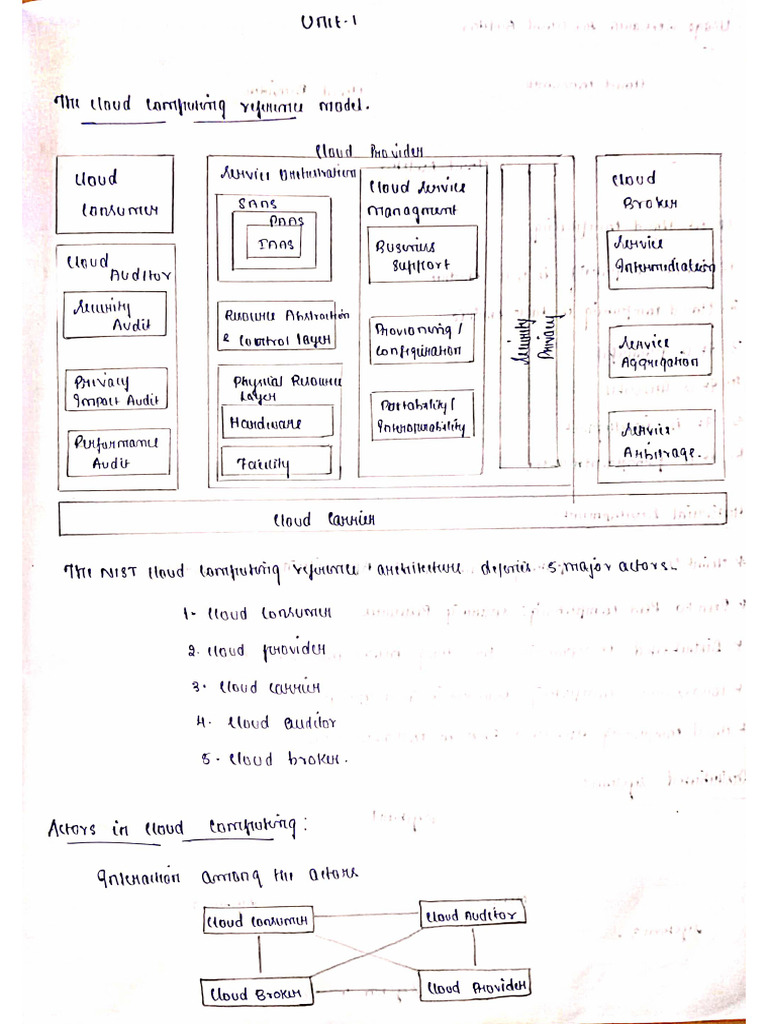 UNIT-1
The Cloud Computing reference model.
Cloud Provider
Cloud
Consumer
Cloud
Auditor
Security
Audit
Privacy
Impact Audit
Performance
Audit
Service Orchestration
SAAS
PAAS
IAAS
Resource Abstraction
& Control layer
Physical Resource
Layer
Hardware
Facility
Cloud Service
Managment
Business
Support
Provisioning /
Configuration
Portability /
Interoperability
Security
Privacy
Cloud
Broker
Service
Intermediation
Service
Aggregation
Service
Arbitrage.
Cloud Carrier
The NIST Cloud Computing reference architecture defines 5 major actors.
1- Cloud Consumer
2. Cloud provider
3. Cloud carrier
4. Cloud auditor
5. Cloud broker.
Actors in Cloud Computing:
Interaction among the actors
Cloud Consumer
Cloud Auditor
Cloud Broker
Cloud Provider